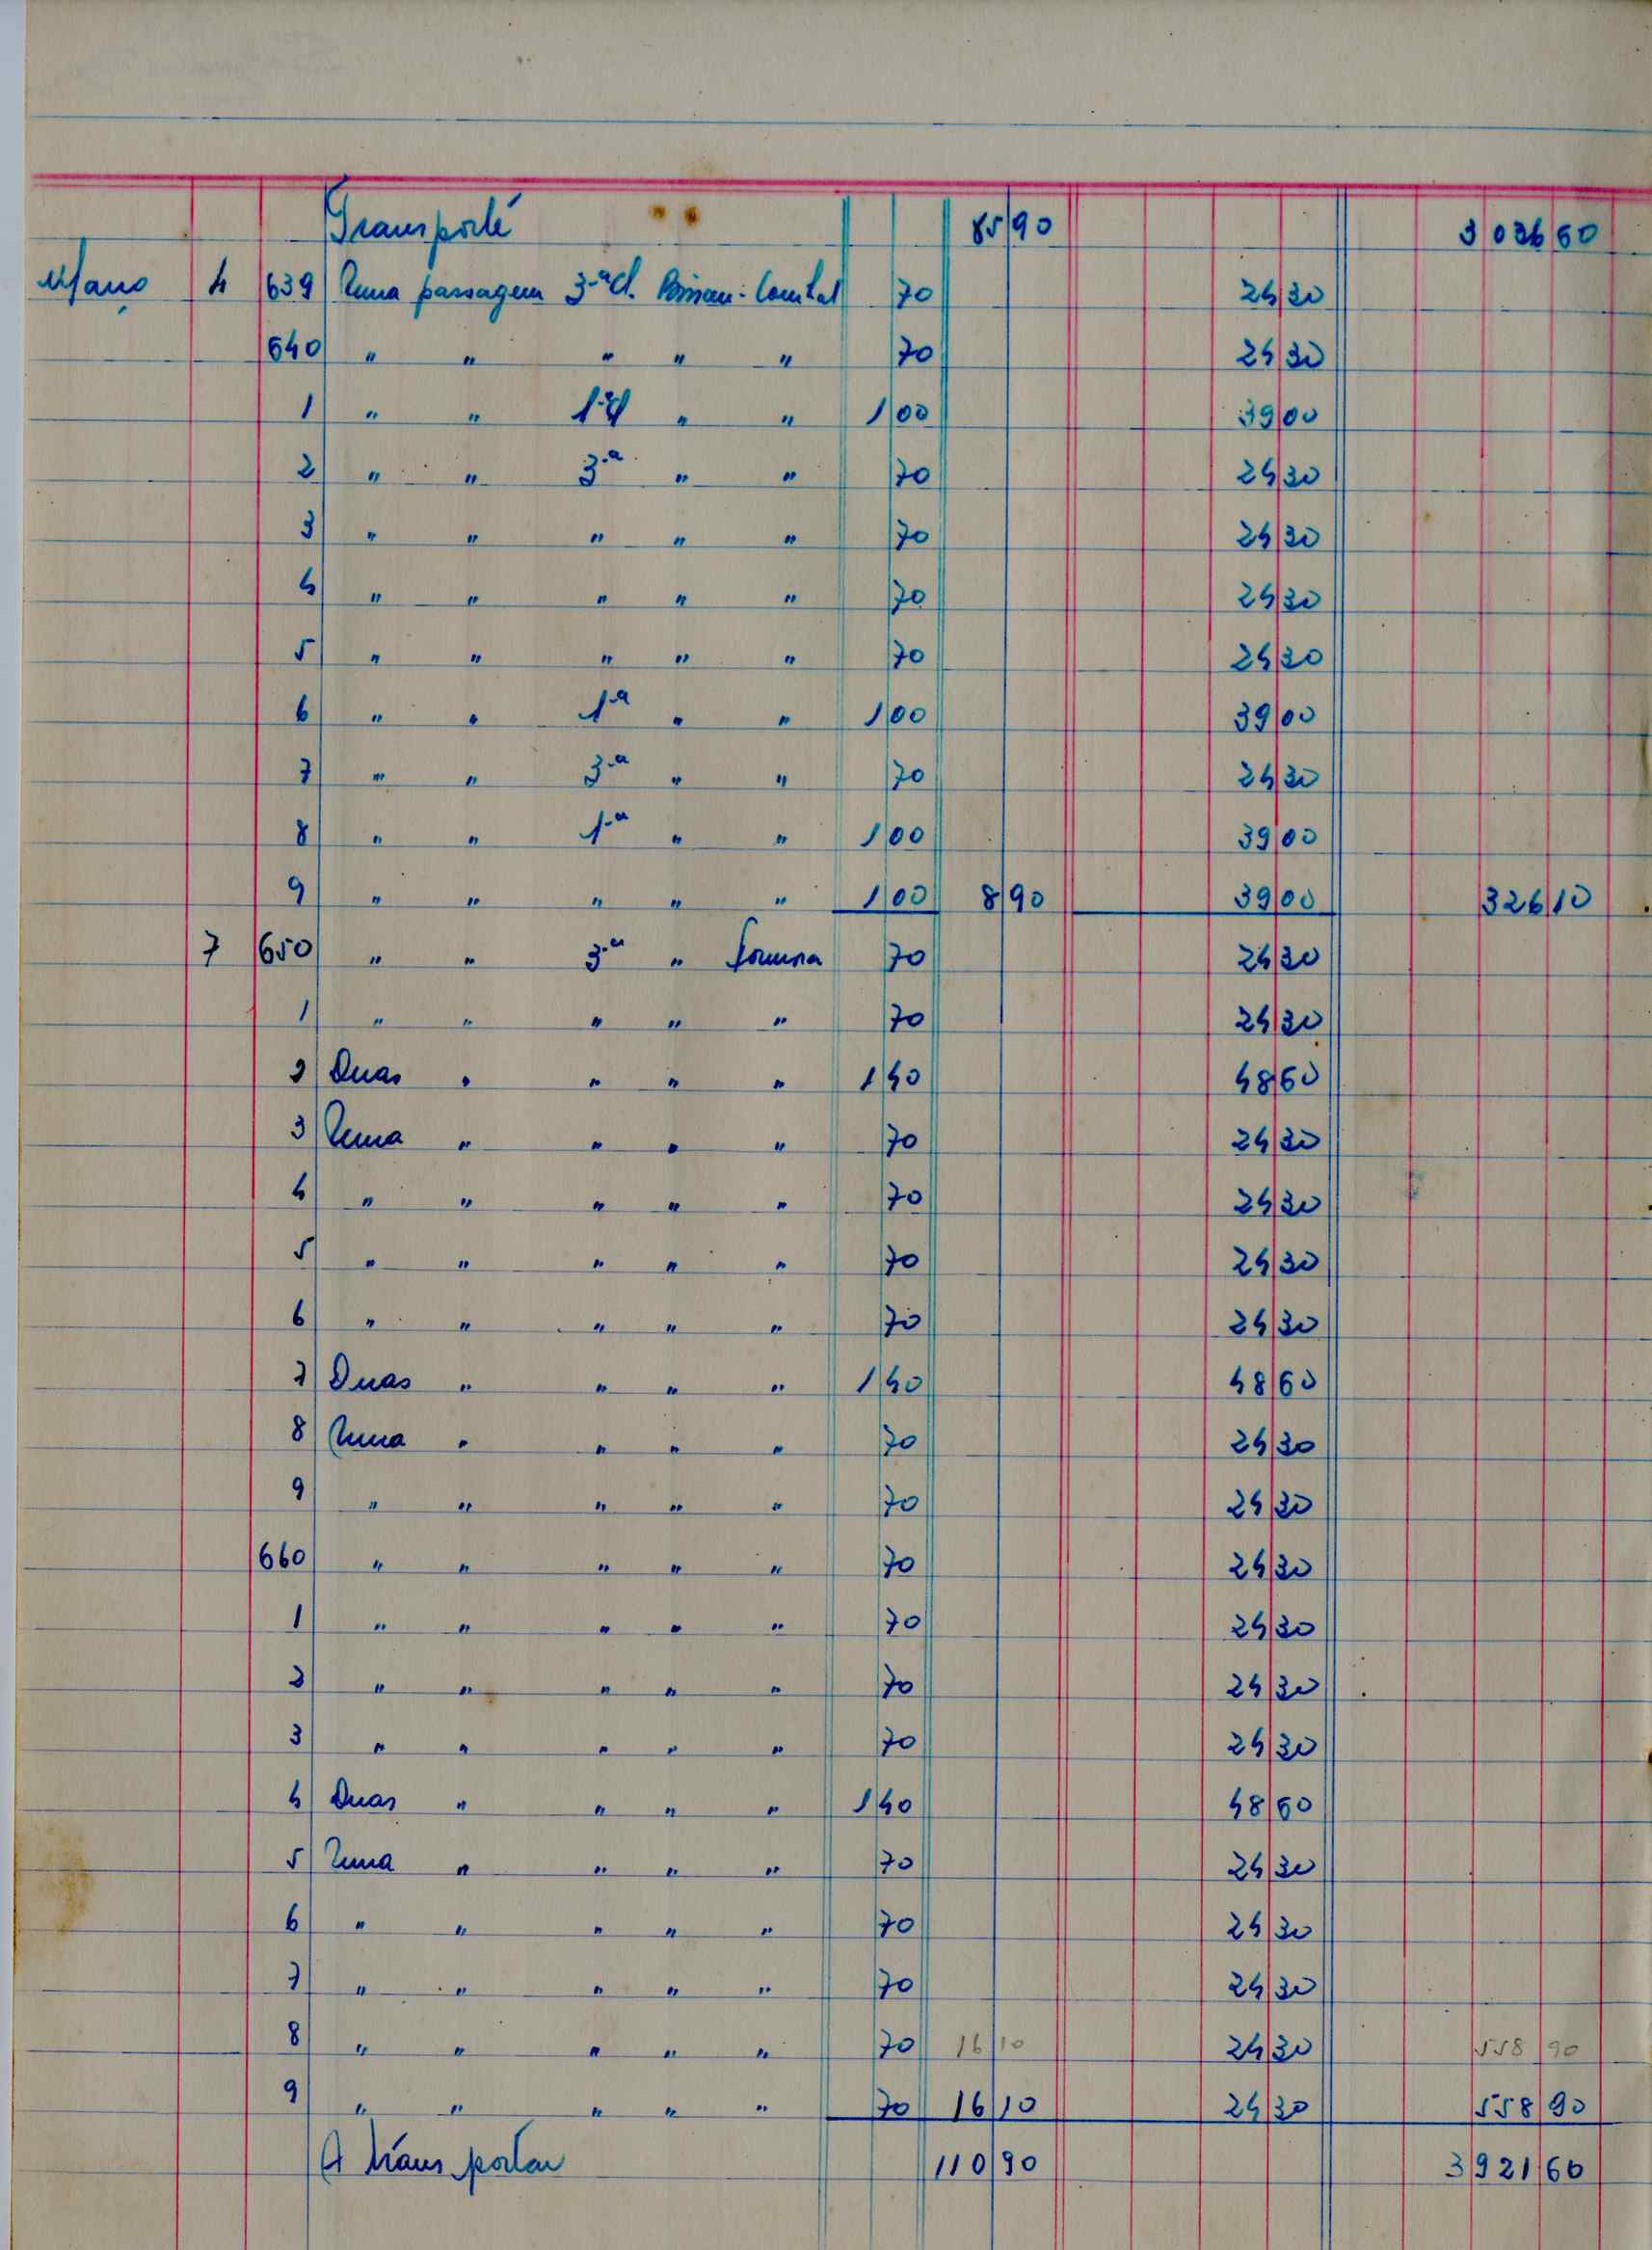 Transporte 85 90 3 036 60
Março 4 639 Uma passagem 3.ª cl. Bissau- 70 24 30
640 " " " " " 70 24 30
1 " " 1.ª cl " " 1 00 39 00
2 " " 3.ª " " 70 24 30
3 " " " " " 70 24 30
4 " " " " " 70 24 30
5 " " " " " 70 24 30
6 " " 1.ª " " 1 00 39 00
7 " " 3.ª " " 70 24 30
8 " " 1.ª " " 1 00 39 00
9 " " " " " 1 00 8 90 39 00 326 10
7 650 " " 3.ª " 70 24 30
1 " " " " " 70 24 30
2 Duas " " " " 1 40 48 60
3 Uma " " " " 70 24 30
4 " " " " " 70 24 30
5 " " " " " 70 24 30
6 " " " " " 70 24 30
7 Duas " " " " 1 40 48 60
8 Uma " " " " 70 24 30
9 " " " " " 70 24 30
660 " " " " " 70 24 30
1 " " " " " 70 24 30
2 " " " " " 70 24 30
3 " " " " " 70 24 30
4 Duas " " " " 1 40 48 60
5 Uma " " " " 70 24 30
6 " " " " " 70 24 30
7 " " " " " 70 24 30
8 " " " " " 70 16 10 24 30 558 90
9 " " " " " 70 16 10 24 30 558 90
A transportar 110 90 3 921 60